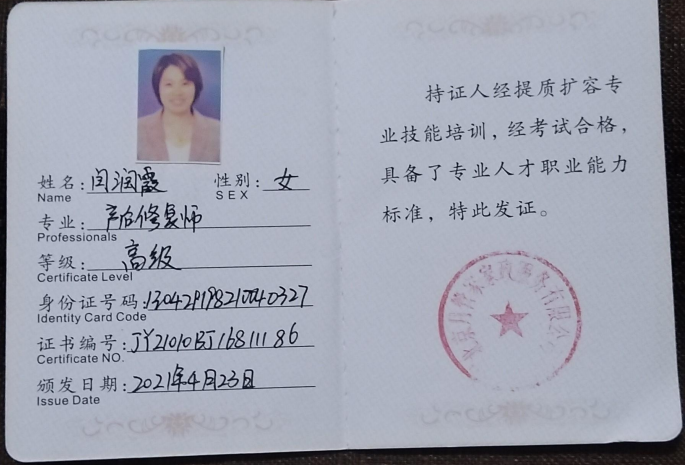 姓名：闫润霞
Name
性别：女
SEX
专业：产后修复师
Professionals
等级：高级
Certificate Level
身份证号码：
Identity Card Code
证书编号：JY21010BJ1681186
Certificate NO.
颁发日期：2021年4月23日
Issue Date
持证人经提质扩容专
业技能培训，经考试合格，
具备了专业人才职业能力
标准，特此发证。